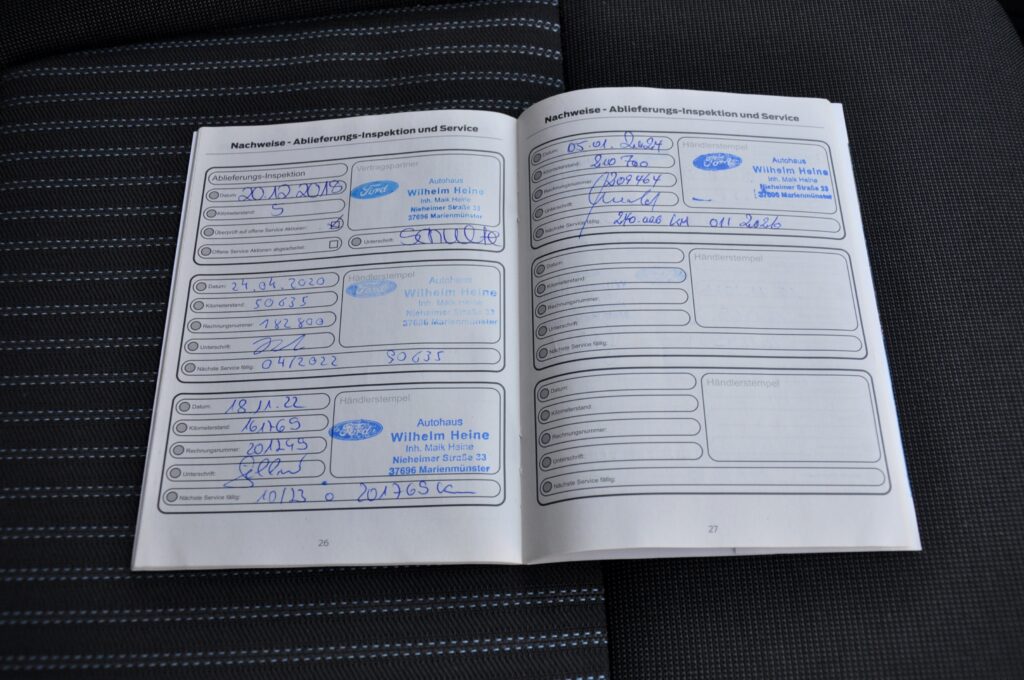 Nachweise - Ablieferungs-Inspektion und Service
Ablieferungs-Inspektion
Datum: 20 12 2018
Kilometerstand: 5
Überprüft auf offene Service Aktionen:
Offene Service Aktionen abgearbeitet:
Vertragspartner
Ford
Autohaus
Wilhelm Heine
Inh. Maik Haine
Nieheimer Straße 33
37696 Marienmünster
Unterschrift: Schulte
Datum: 24.04.2020
Kilometerstand: 50635
Rechnungsnummer: 182800
Unterschrift:
Nächste Service fällig: 04/2022 90635
Händlerstempel
Ford
Autohaus
Wilhelm Heine
Inh. Maik Haine
Nieheimer Straße 33
37696 Marienmünster
Datum: 18.11.22
Kilometerstand: 161769
Rechnungsnummer: 201249
Unterschrift:
Nächste Service fällig: 10/23 o 201769 km
Händlerstempel
Ford
Autohaus
Wilhelm Heine
Inh. Maik Haine
Nieheimer Straße 33
37696 Marienmünster
26
Nachweise - Ablieferungs-Inspektion und Service
Datum: 05.01.
Kilometerstand: 210700
Rechnungsnummer: 209467
Unterschrift:
Nächste Service fällig: 240.000 km 01 2026
Händlerstempel
Ford
Autohaus
Wilhelm Heine
Inh. Maik Haine
Nieheimer Straße 33
37696 Marienmünster
Datum:
Kilometerstand:
Rechnungsnummer:
Unterschrift:
Nächste Service fällig:
Händlerstempel
Datum:
Kilometerstand:
Rechnungsnummer:
Unterschrift:
Nächste Service fällig:
Händlerstempel
27